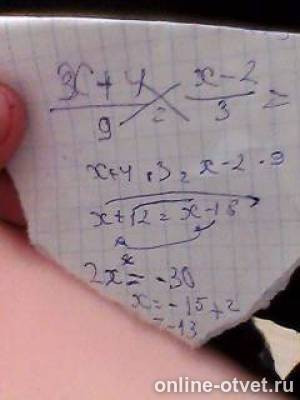 x+4 x-2 =
9 = 3
x+4·3=x-2·9
x+12=x-18
2x=-30
x=-15+2
=-13
online-otvet.ru